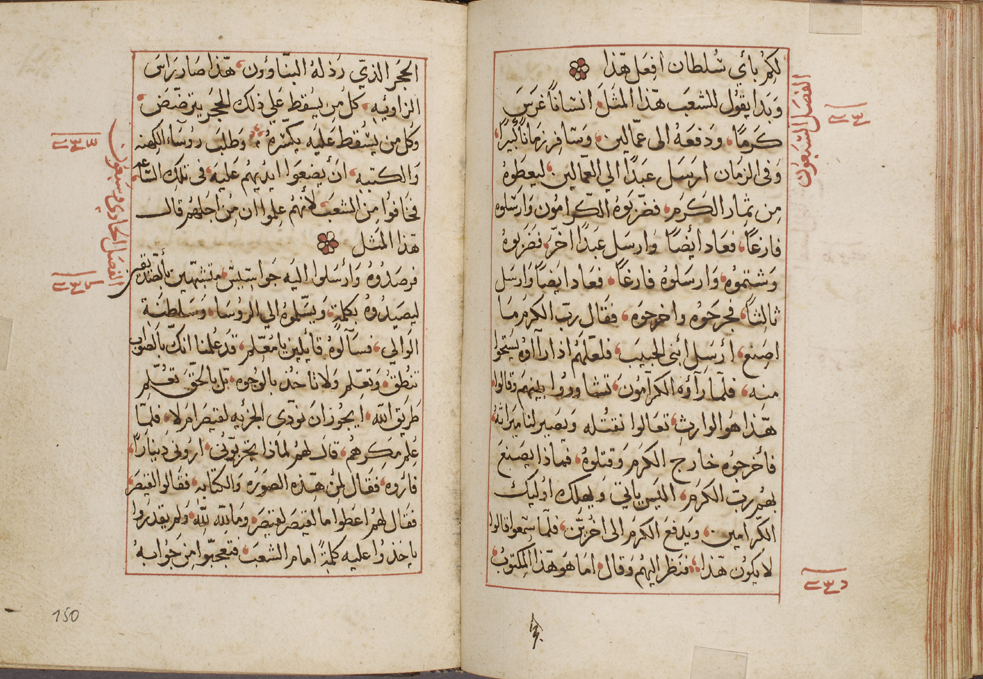 لكم بأي سلطان افعل هذا
وبدا يقول للشعب هذا المثل انسانا غرس
كرما ودفعه الى عمالين وسافر زمانا كبيرا
وفى الزمان ارسل عبدا الي العمالين ليعطوه
من ثمار الكرم فضربوه الكرامون وارسلوه
فارغا فعاد ايضا وارسل عبدا اخر فضربوه
وشتموه وارسلوه فارغا فعاد ايضا وارسل
ثالثا فجرحوه واخرجوه فقال رب الكرم ما
اصنع ارسل ابني الحبيب فلعلهم اذا راوه يستحوا
منه فلما راوه الكرامون تشاوروا بينهم وقالوا
هذا هو الوارث تعالوا نقتله ويصير لنا ميراثه
فاخرجوه خارج الكرم وقتلوه فماذا يصنع
بهم رب الكرم اليس ياتي ويهلك اوليك
الكرامين ويدفع الكرم الى اخرين فلما سمعوا قالوا
لا يكون هذا فنظر اليهم وقال اما هو هذا المكتوب
الفصل السبعون
الحجر الذي رذله البناوون هذا صار راس
الزاويه كل من يسقط علي ذلك الحجر يترضض
وكل من يسقط عليه يكسره وطلب روساء الكهنه
والكتبه أن يضعوا ايديهم عليه في تلك الساعه
فخافوا من الشعب لأنهم علموا ان من اجلهم قال
هذا المثل
فرصدوه وأرسلوا اليه جواسيس متشبهين بالصديقين
ليصيدوه بكلمة ويسلموه الي الروسا وسلطنة
الوالي فسالوه قايلين يا معلم قد علمنا انك بالصواب
تنطق وتعلم ولا تاخذ بالوجوه بل بالحق تعلم
طريق الله ايجوز ان نودى الجزيه لقيصر ام لا فلما
علم مكرهم قال لهم لماذا تجربوني اروني دينارا
فاروه فقال لمن هذه الصوره والكتابه فقالوا لقيصر
فقال لهم اعطوا ما لقيصر لقيصر وما لله لله ولم يقدروا
ياخذوا عليه كلمة امام الشعب فتعجبوا من جوابه
الفصل الحادي وسبعون
150